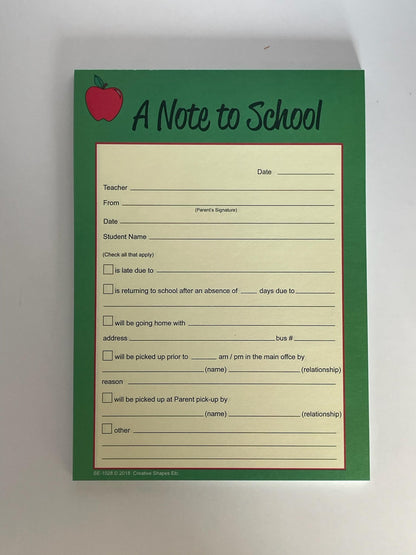 A Note to School
Date ____________
Teacher ____________
From ____________
(Parent's Signature)
Date ____________
Student Name ____________
(Check all that apply)
is late due to ____________
is returning to school after an absence of ____ days due to ________
____________
will be going home with ____________
address ____________ bus # ________
will be picked up prior to ______ am / pm in the main office by
____________ (name) ____________ (relationship)
reason ____________
will be picked up at Parent pick-up by
____________ (name) ____________ (relationship)
other ____________
SE-1028 © 2018 Creative Shapes Etc.